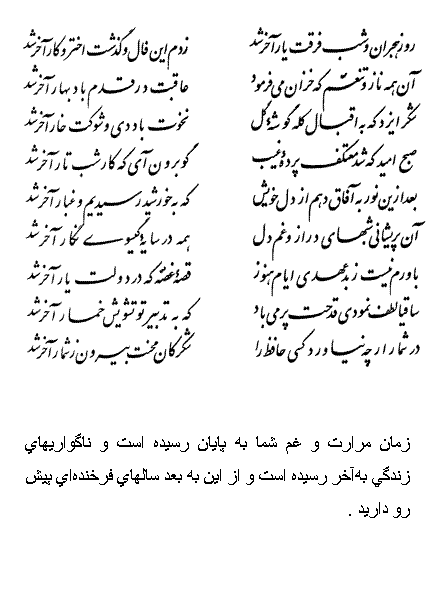 روز هجران و شب فرقت یار آخر شد زدم این فال و گذشت اختر و کار آخر شد
آن همه ناز و تنعم که خزان می فرمود عاقبت در قدم باد بهار آخر شد
شکر ایزد که به اقبال کله گوشهٔ گل نخوت باد دی و شوکت خار آخر شد
صبح امید که شد معتکف پردهٔ غیب گو برون آی که کار شب تار آخر شد
بعد ازین نور به آفاق دهم از دل خویش که به خورشید رسیدیم و غبار آخر شد
آن پریشانی شبهای دراز و غم دل همه در سایهٔ گیسوی نگار آخر شد
باورم نیست ز بدعهدی ایام هنوز قصهٔ غصه که در دولت یار آخر شد
ساقیا لطف نمودی قدحت پر می باد که به تدبیر تو تشویش خمار آخر شد
در شمار ار چه نیاورد کسی حافظ را شکر کان محنت بیرون ز شمار آخر شد
زمان مرارت و غم شما به پايان رسيده است و ناگواريهاي
زندگي به‌آخر رسيده است و از اين به بعد سالهاي فرخنده‌اي پيش
رو داريد .